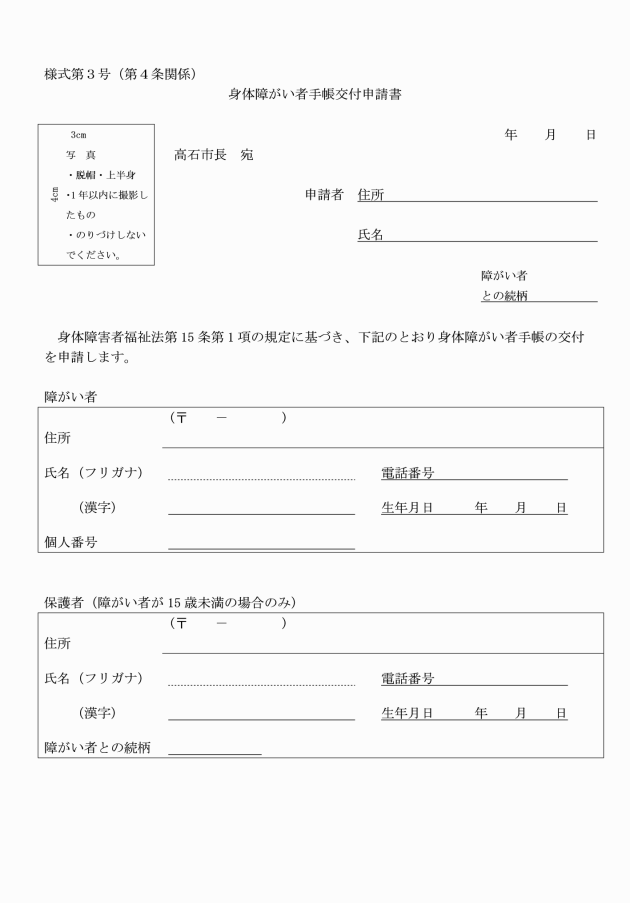 様式第３号（第４条関係）
身体障がい者手帳交付申請書
年　　月　　日
3cm
4cm
写　真
・脱帽・上半身
・1 年以内に撮影し
たもの
・のりづけしない
でください。
高石市長　宛
申請者　住所
氏名
障がい者
との続柄
　身体障害者福祉法第 15 条第１項の規定に基づき、下記のとおり身体障がい者手帳の交付
を申請します。
障がい者
（〒　　－　　　　）
住所
氏名（フリガナ）　電話番号
（漢字）　生年月日　　　年　　月　　日
個人番号
保護者（障がい者が 15 歳未満の場合のみ）
（〒　　－　　　　）
住所
氏名（フリガナ）　電話番号
（漢字）　生年月日　　　年　　月　　日
障がい者との続柄